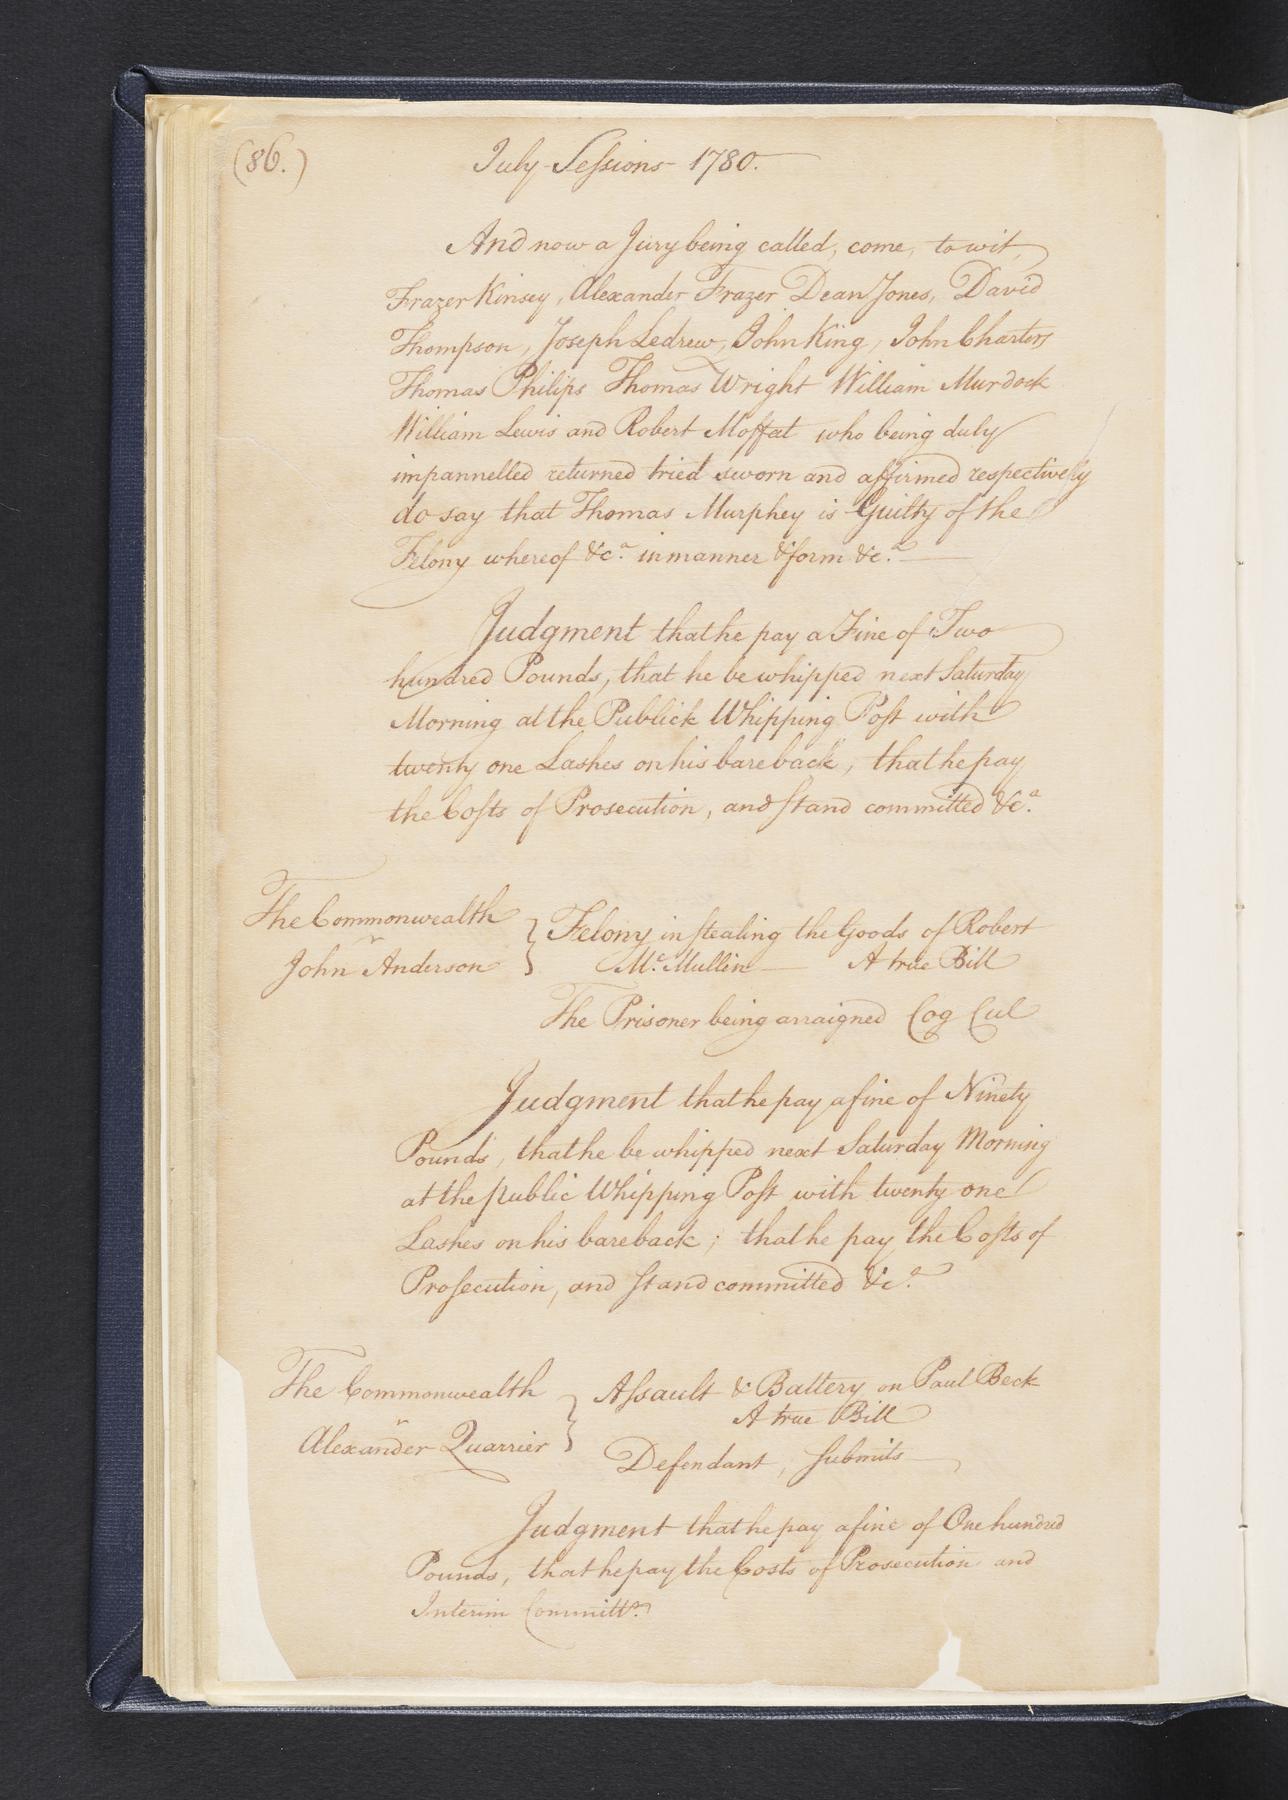 (86.)
July Sessions 1780.
And now a Jury being called, come, to wit,
Frazer Kinsey, Alexander Frazer Dean Jones, David
Thompson, Joseph Ledrew, John King, John Charters
Thomas Philips Thomas Wright William Murdock
William Lewis and Robert Moffat who being duly
impannelled returned tried sworn and affirmed respectively
do say that Thomas Murphey is Guilty of the
Felony whereof &c.a in manner & form &c.a
Judgment that he pay a Fine of Two
hundred Pounds, that he be whipped next Saturday
Morning at the Publick Whipping Post with
twenty one Lashes on his bare back, that he pay
the Costs of Prosecution, and stand committed &c.a
The Commonwealth
v
John Anderson
Felony in stealing the Goods of Robert
Mc. Mullin — A true Bill
The Prisoner being arraigned Cog Cul
Judgment that he pay a fine of Ninety
Pounds, that he be whipped next Saturday Morning
at the public Whipping Post with twenty one
Lashes on his bare back; that he pay the Costs of
Prosecution, and stand committed &c.a
The Commonwealth
v
Alexander Quarrier
Assault & Battery on Paul Beck
A true Bill
Defendant, Submits
Judgment that he pay a fine of One hundred
Pounds, that he pay the Costs of Prosecution and
Interim Committr.